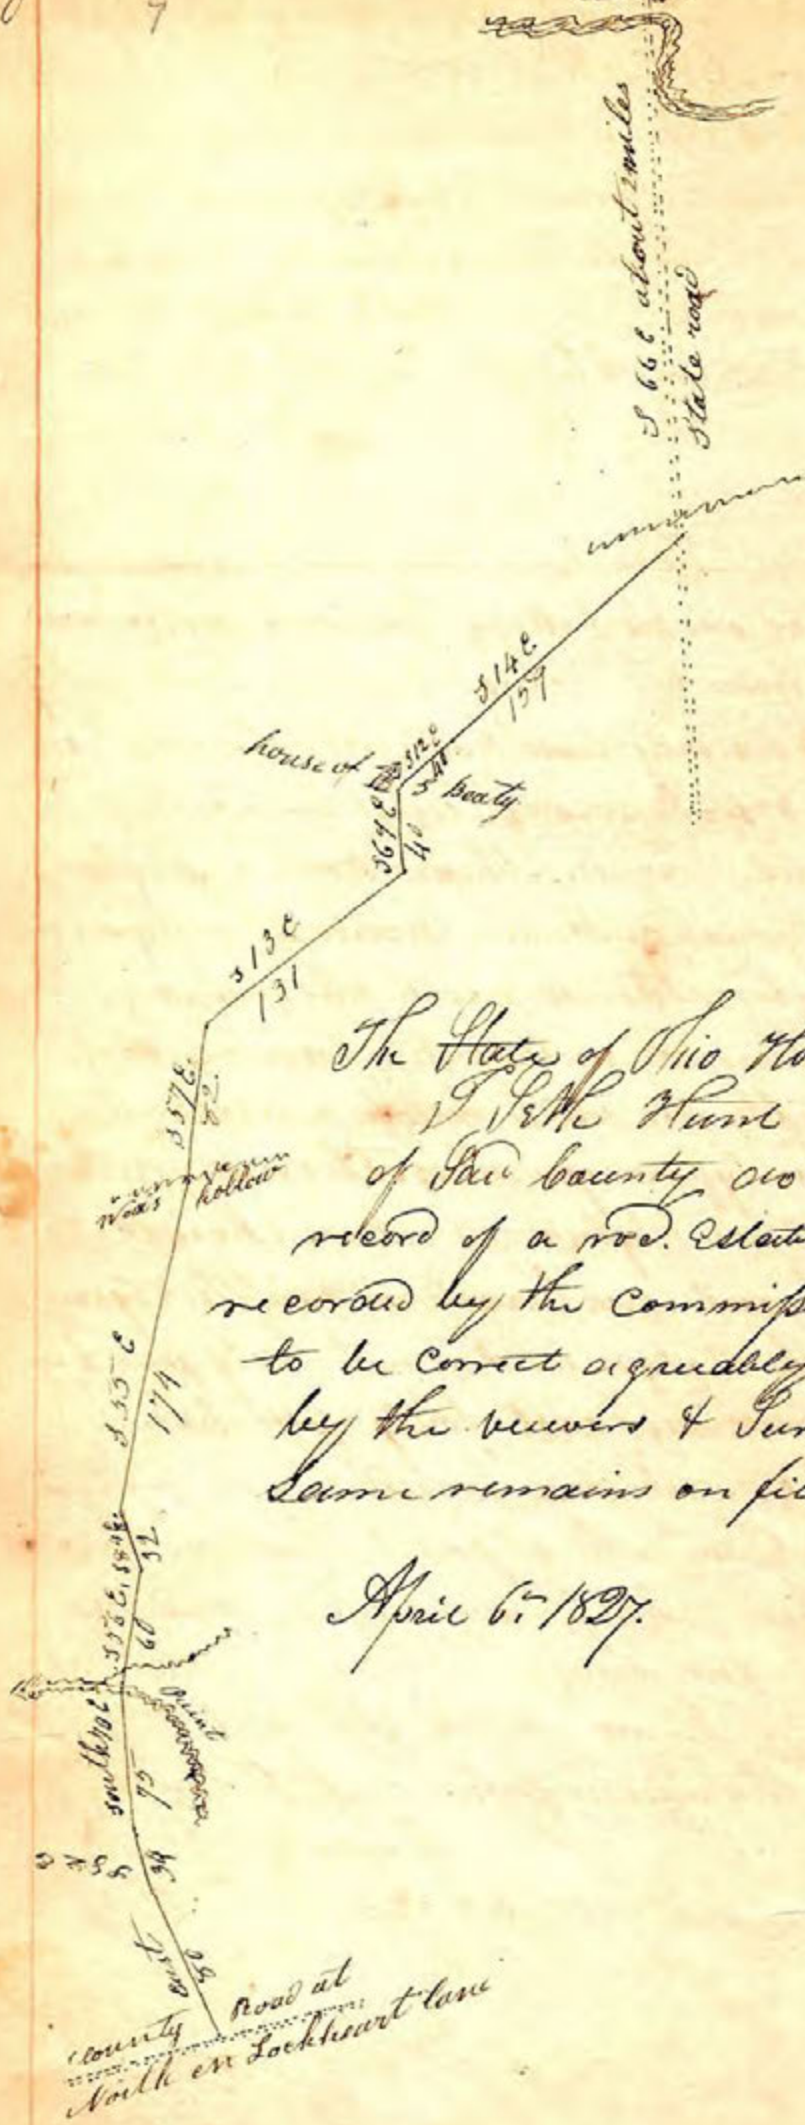 7
S 66 E about 2 miles
State road
S 14 E
157
house of
S 12 E
Beaty
S 69 E
40
S 13 E
131
S 57 E
hollow
S 55 E
174
32
S 56 E
60
Point
south 70 E
75
East
County Road at
North en Lockheart lane
The State of Ohio Ho
I Seth Hunt
of Said County do
record of a rod. Estab
recorded by the Commiss
to be Correct agreeably
by the viewers & Sur
Same remains on fil
April 6th 1827.